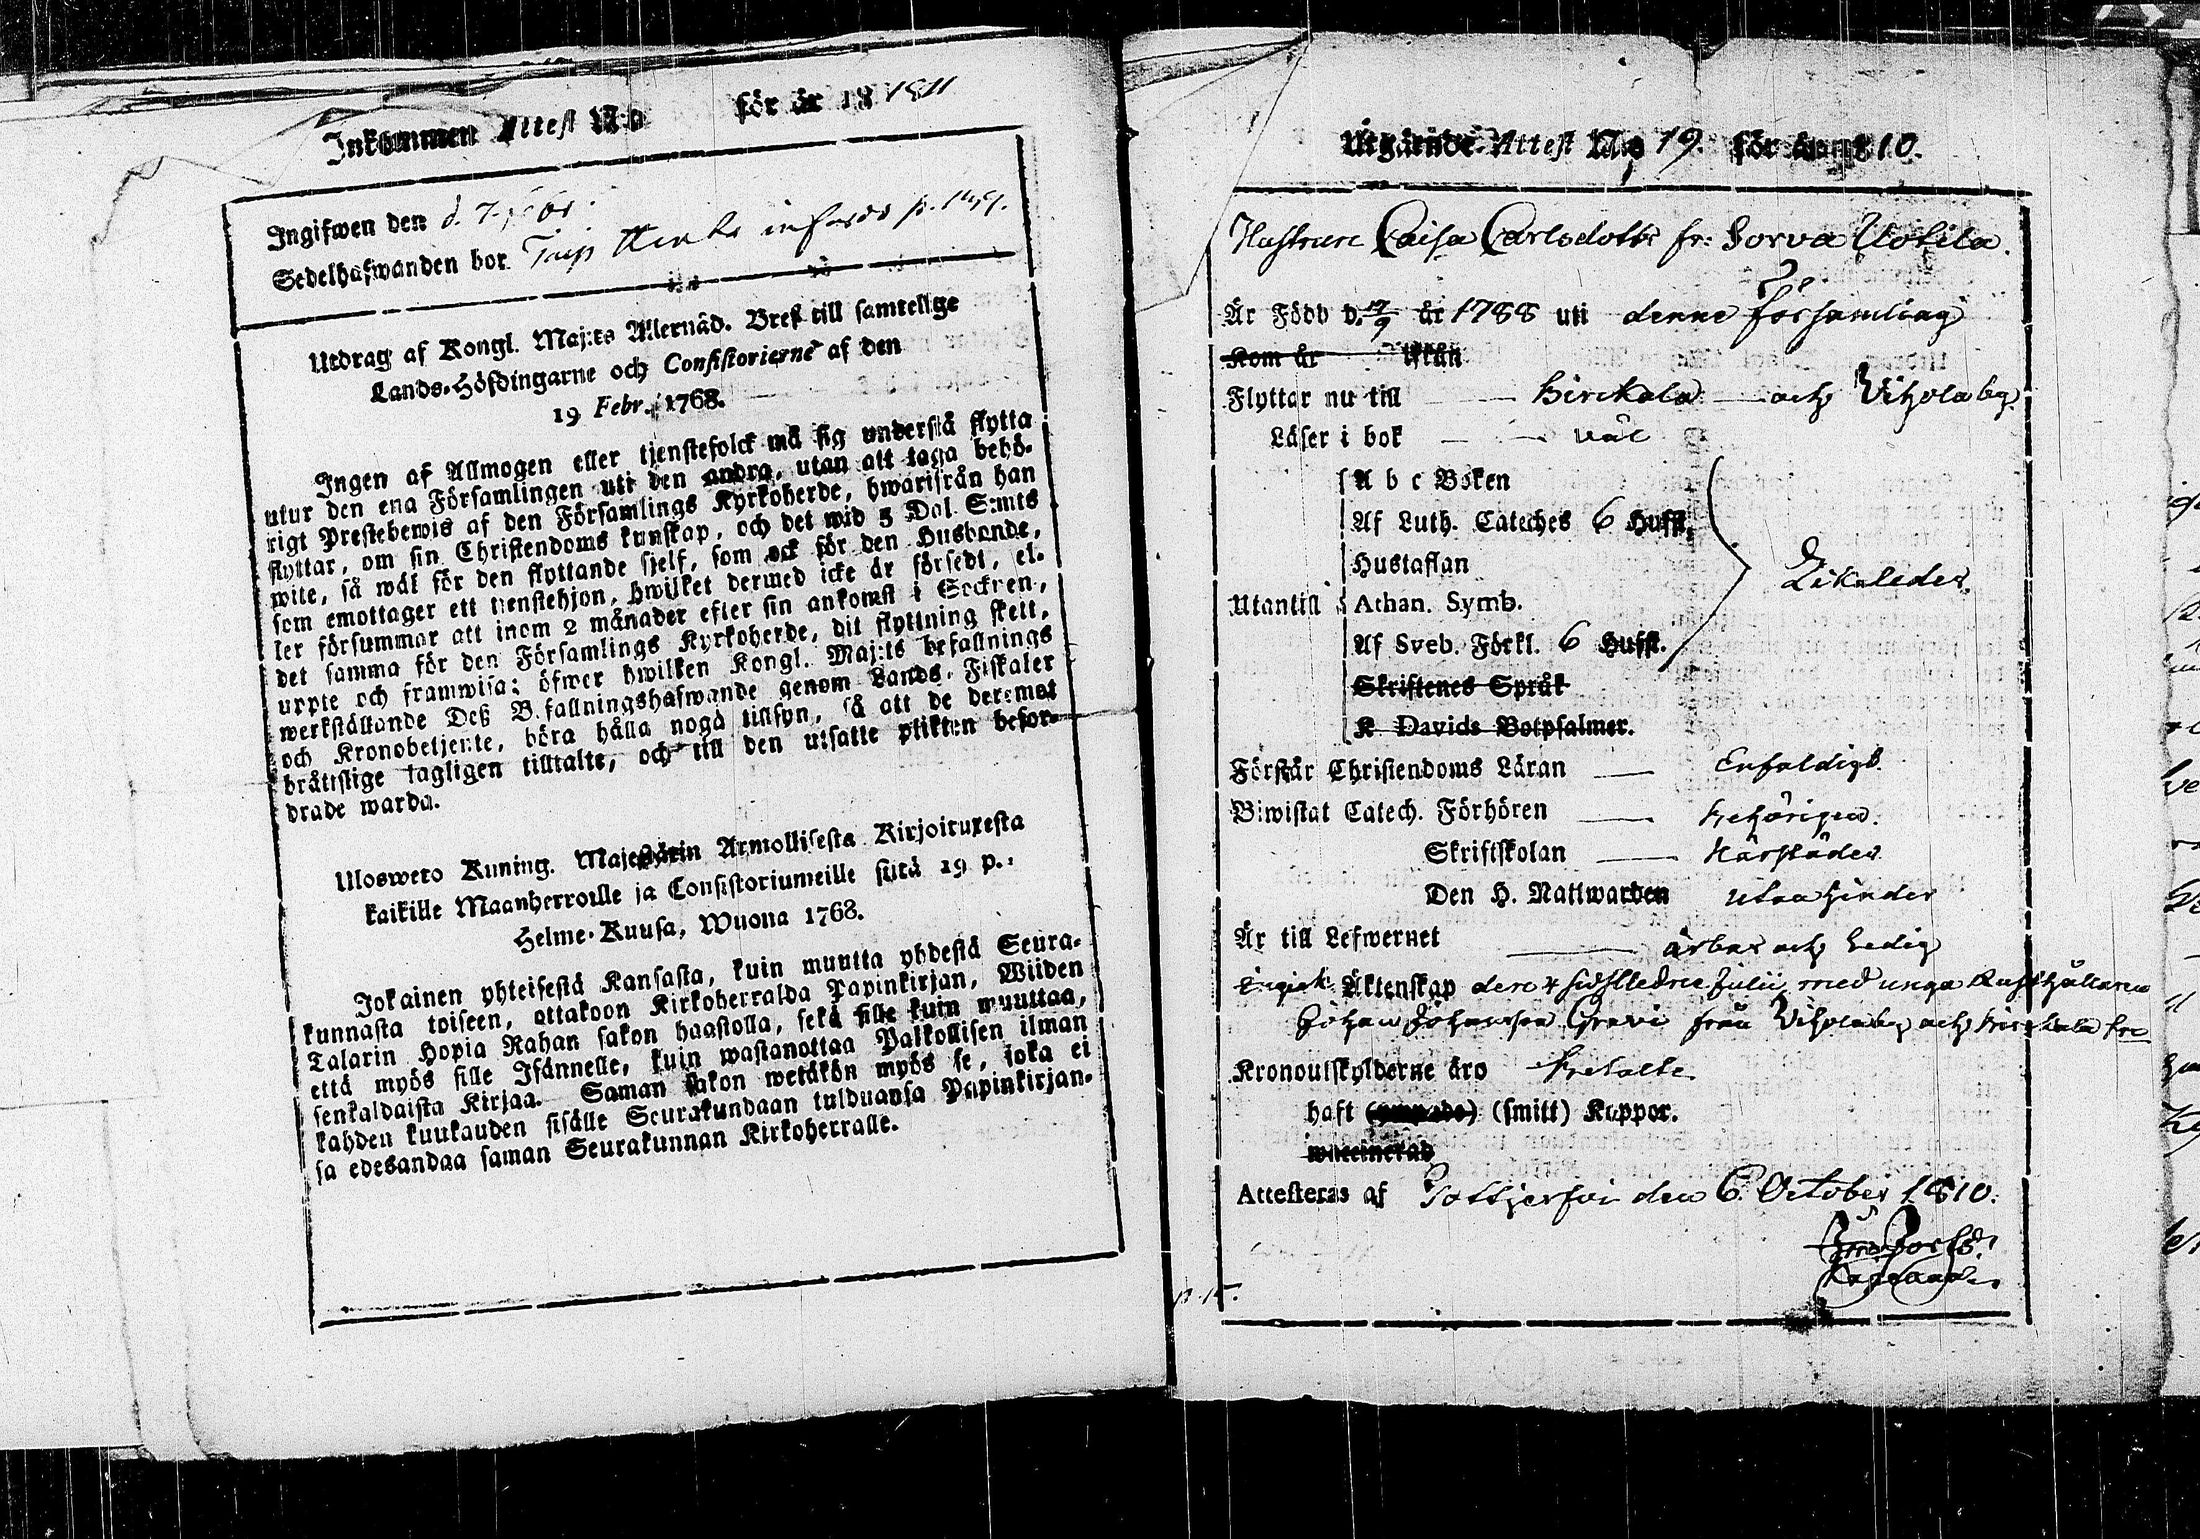 Inkommen Attest N:o för år 18 1811
Ingifwen den d. 7 febr:
Sedelhafwanden bor infördt p.
Utdrag af Kongl. Maj:ts Allernåd. Bref till samtelige
Lands-Höfdingarne och Consistorierne af den
19 Febr. 1768.
Ingen af Allmogen eller tjenstefolck må sig understå flytta
utur den ena Församlingen uti den andra, utan att taga behö-
rigt Prestebewis af den Församlings Kyrkoherde, hwarifrån han
flyttar, om sin Christendoms kunskap, och det wid 5 Dal. S:mts
wite, så wäl för den flyttande sjelf, som ock för den Husbonde,
som emottager ett tienstehjon, hwilket dermed icke är försedt, el-
ler försummar att inom 2 månader efter sin ankomst i Socknen,
det samma för den Församlings Kyrkoherde, dit flyttning skett,
uppte och framwisa; öfwer hwilken Kongl. Maj:ts befallnings
werkställande Deß B.fallningshafwande genom Lands-Fiskaler
och Kronobetjente, böra hålla noga tillsyn, så att de deremot
bråttslige lagligen tilltalte, och till den utsatte plikten befor-
drade warda.
Uloswetо Kuning. Majestätin Armollisesta Kirjoituxesta
kaikille Maanherroille ja Consistoriumeille siitä 19 p.:
Helme-Kuusa, Wuona 1768.
Jokainen yhteisestä Kansasta, kuin muutta yhdestä Seura-
kunnasta toiseen, ottakoon Kirkoherralda Papinkirjan, Wiiden
Talarin Hopia Rahan sakon haastolla, sekä sille kuin muuttaa,
että myös sille Isännelle, kuin wastanottaa Palkollisen ilman
senkaldaista Kirjaa. Saman sakon wetäkön myös se, joka ei
kahden kuukauden sisälle Seurakundaan tulduansa Papinkirjan-
sa edesandaa saman Seurakunnan Kirkoherralle.
Utgående Attest N:o 19. för år 1810.
Hustrun Caisa Carlsdotter fr: Sorva Uotila.
Är Född d. 17/9 år 1788 uti denne församling
Kom år ifrån
Flyttar nu till Birckala och Vihola by.
Läser i bok väl
A b c Boken
Af Luth. Cateches 6 Hufst.
Hustaflan
Utantill Athan. Symb. Likaledes.
Af Sveb. Förkl. 6 Hufst.
Skriftenes Språk
K Davids Botpsalmer.
Förstår Christendoms Läran Enfaldigt.
Biwistat Catech. Förhören behörigen.
Skriftskolan Härstädes
Den H. Nattwarden utan hinder
Är till Lefwernet ärbar och ledig
Ingick Äktenskap den 4 sidstledne Julii med unga Rusthållaren
Johan Johansson Grevi från Vihola by och Birckala
Kronoutskylderne äro betalte
haft (smitt) Koppor.
waccinerad
Attesteras af Pottjerfvi den 6 October 1810.
p. 15.